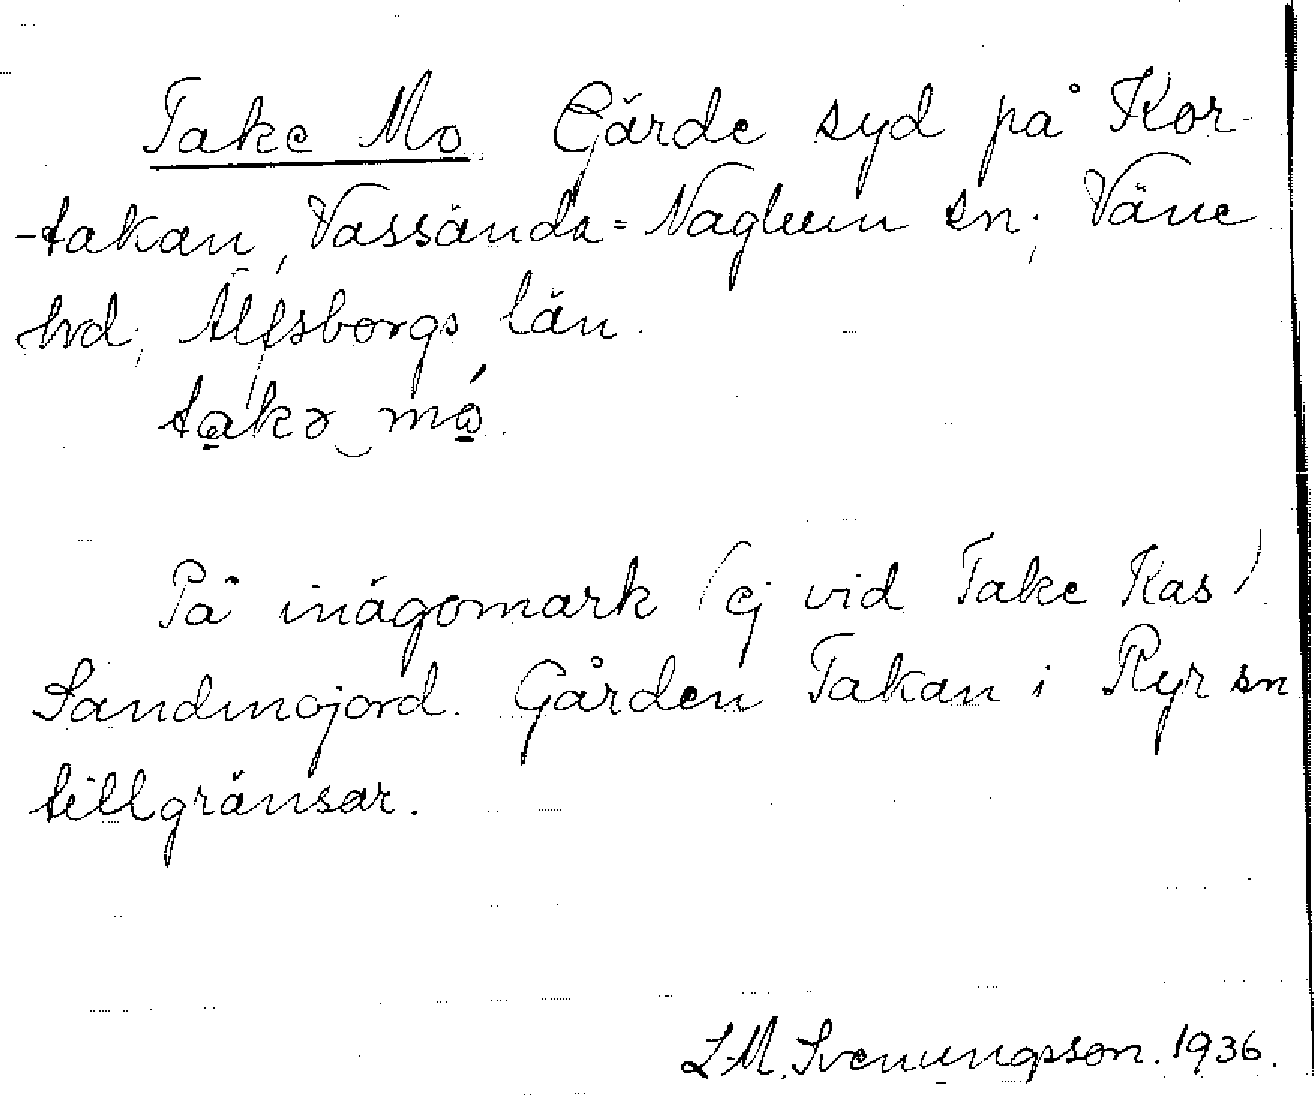 Take Mo Gärde syd på Kor-
-takan, Vassända=Naglum sn; Väne
hrd; Älfsborgs län.
takə mó.
På inägomark (ej vid Take Kas)
Sandmojord. Gården Takan i Ryr sn
tillgränsar.
L.M. Svenungsson. 1936.